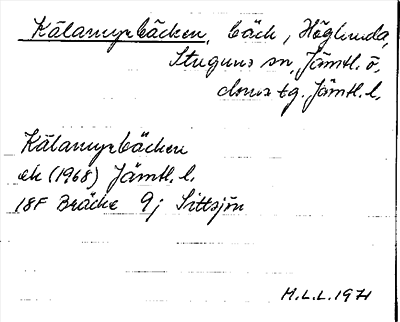 Kälamyrbäcken, bäck, Höglunda,
Stuguns sn, Jämtl. ö.
tg. Jämtl. l.
Kälamyrbäcken
ek (1968) Jämtl. l.
18F Bräcke 9j Sittsjön
M.L.L. 1971